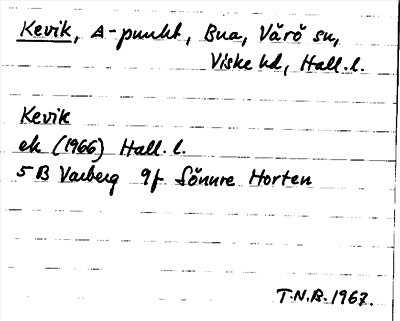 Kevik, A-punkt, Bua, Värö sn,
Viske hd, Hall. l.
Kevik
ek (1966) Hall. l.
5B Varberg 9f Sönnre Horten
T.N.B. 1967.